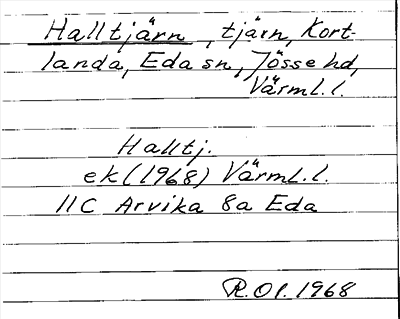 Halltjärn, tjärn, Kort-
landa, Eda sn, Jösse hd,
Värml. l.
Halltj.
ek (1968) Värml. l.
11C Arvika 8a Eda
R.Ol. 1968